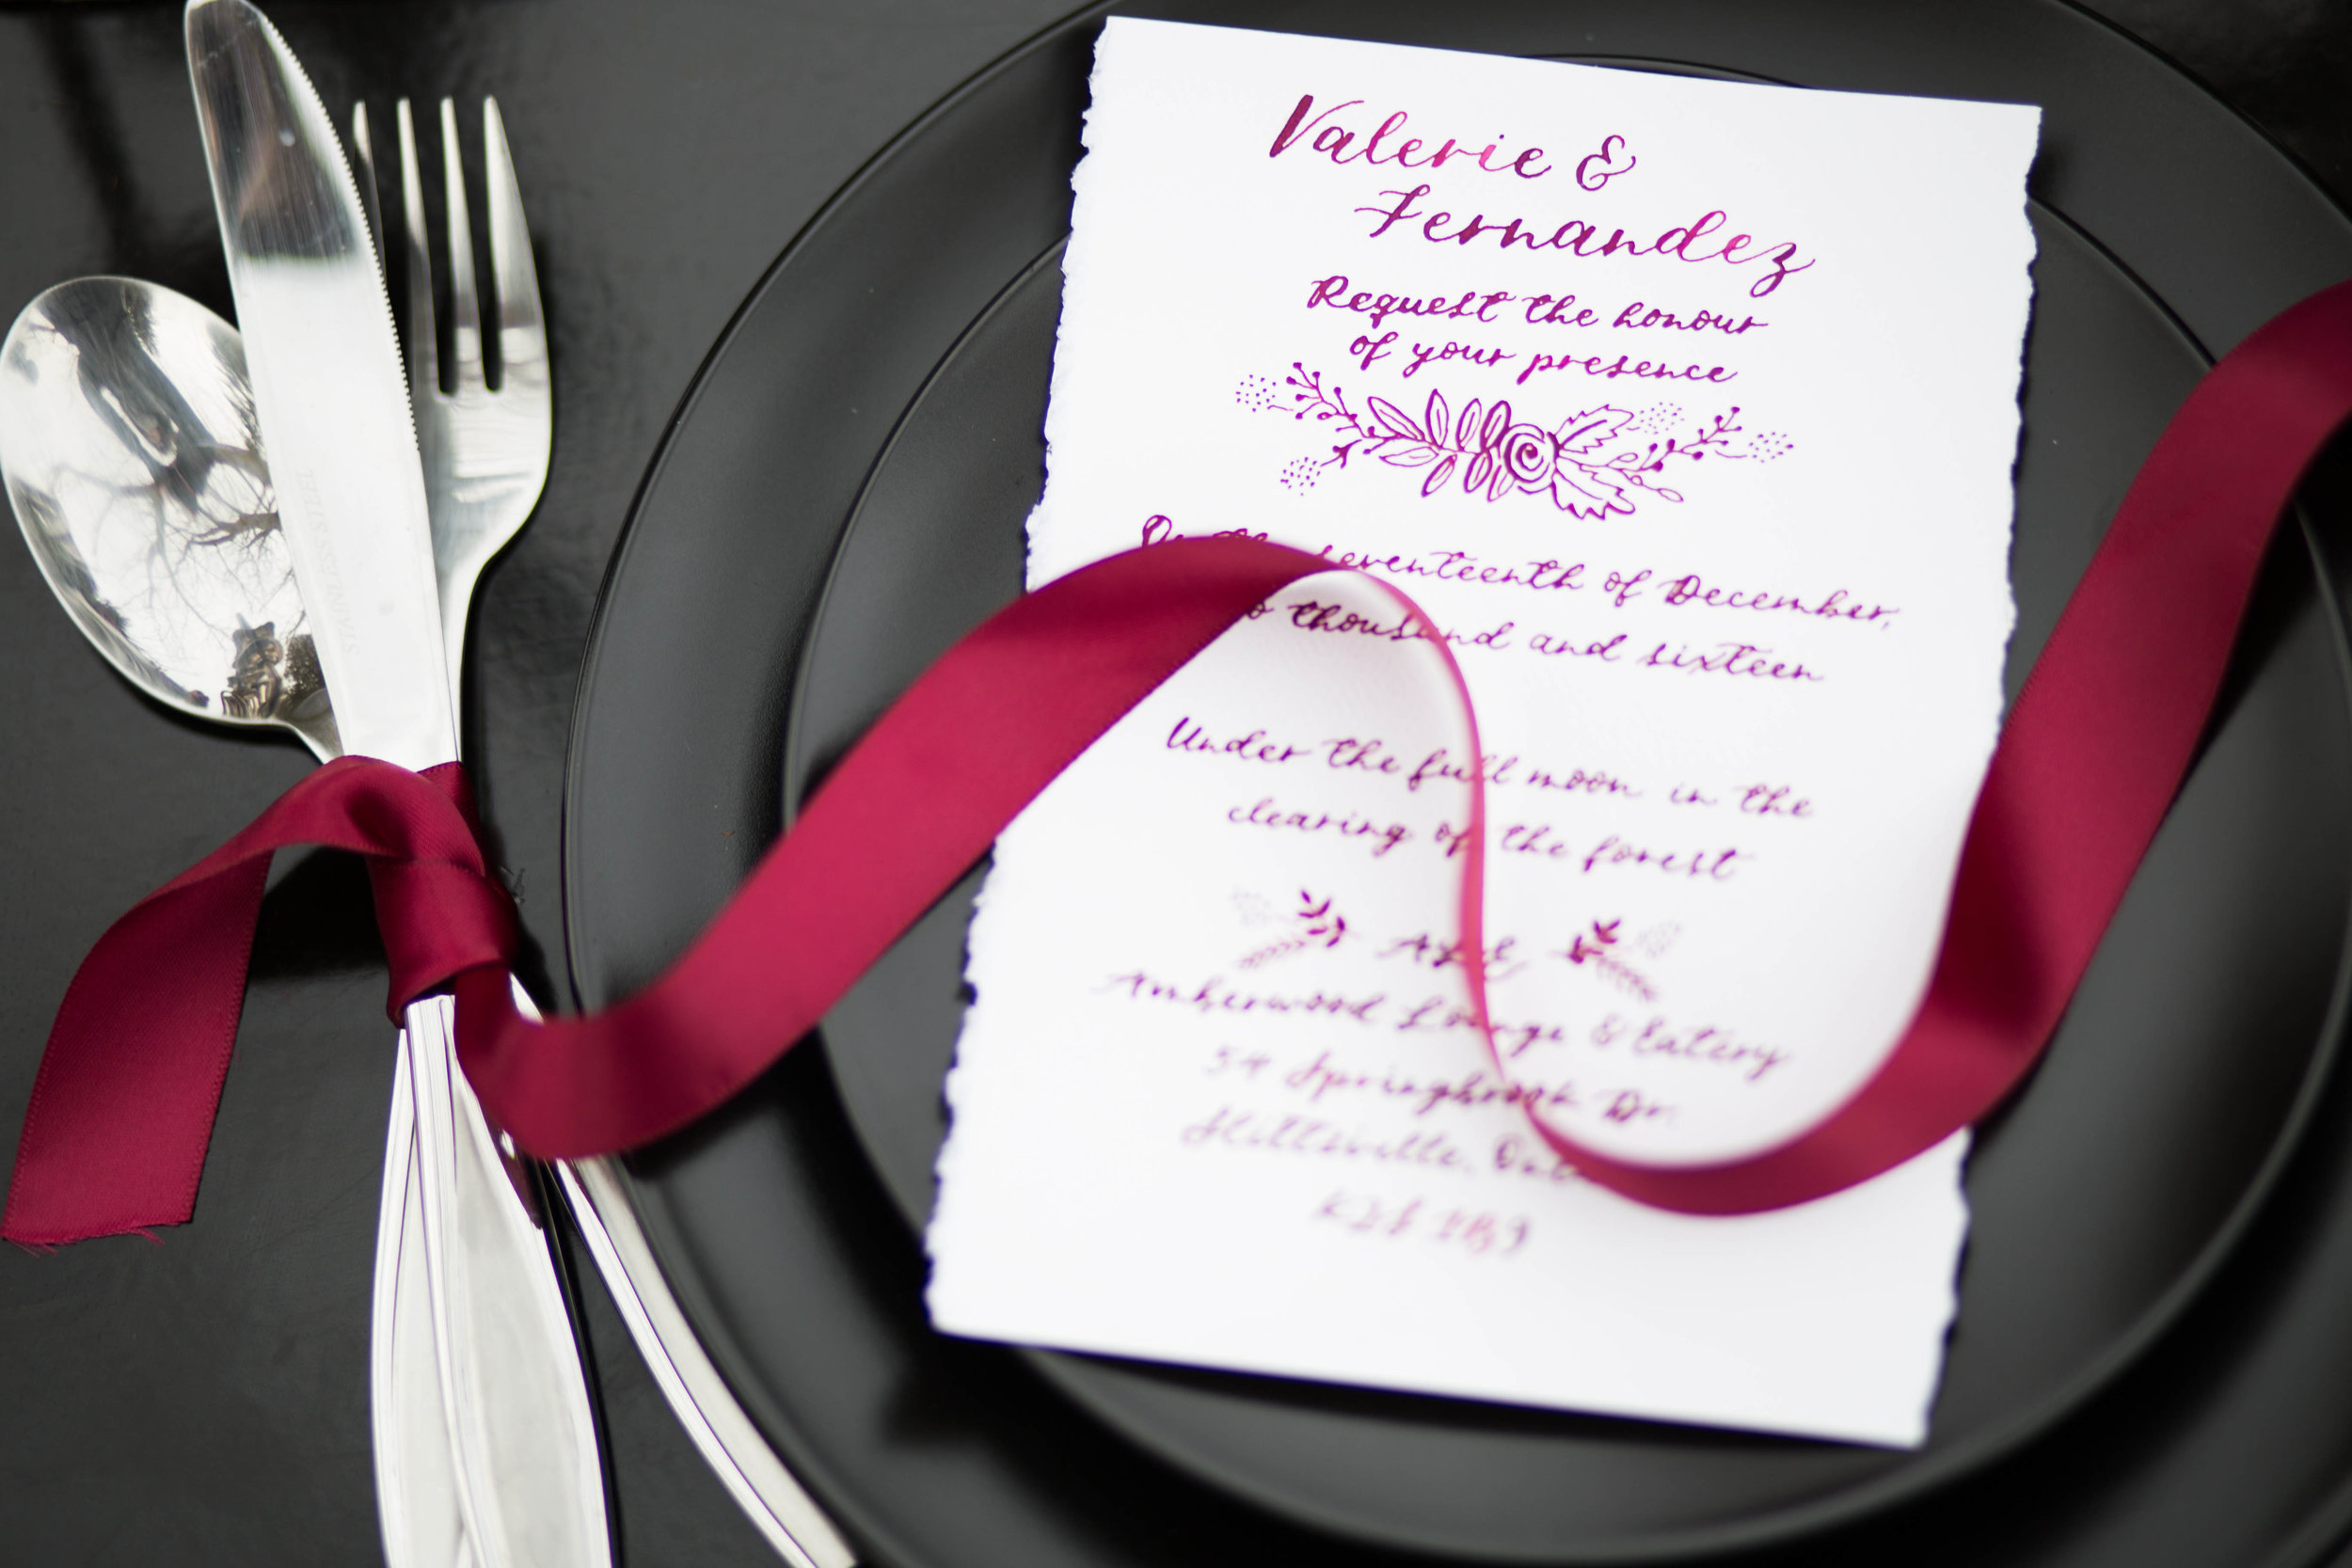 Valerie &
Fernandez
Request the honour
of your presence
On the seventeenth of December,
thousand and sixteen
Under the full moon in the
clearing of the forest
At
Amberwood Lounge & Eatery
54 Springbrook Dr.
Stittsville,
K2S 1B9
STAINLESS STEEL